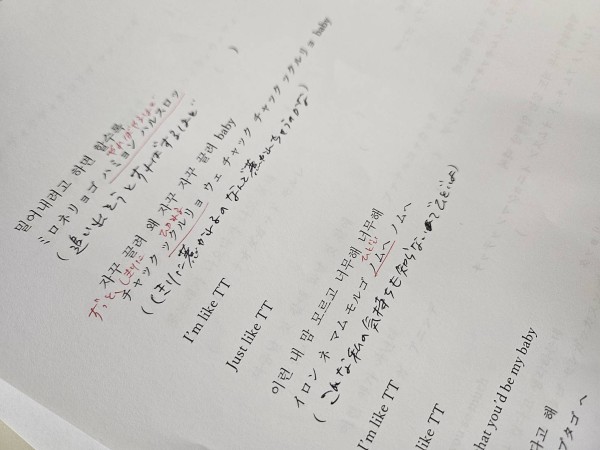 밀어내려고 하면 할수록
ミロネリョゴ ハミョン ハルスロッ
(追い出そうとすればするほど)
자꾸 끌려 왜 자꾸 자꾸 끌려 baby
ずっと、しきりに
チャック ックルリョ ウェ チャック チャック ックルリョ baby
(しきりに惹かれるのなんで惹かれちゃうのかな)
I'm like TT
Just like TT
이런 내 맘 모르고 너무해 너무해
ひどい
イロン ネ マム モルゴ ノムヘ ノムヘ
(こんな私の気持ちも知らないでひどいよ)
I'm like TT
like TT
hat you'd be my baby
다고 해
プタゴ ヘ